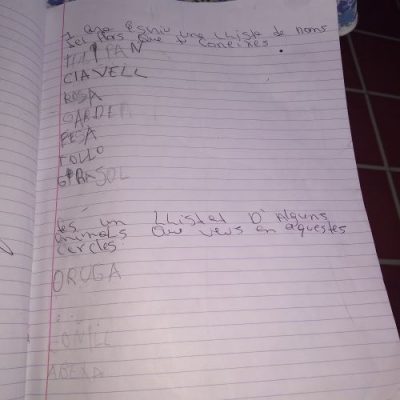 I ara Escriu una Llista de noms
del flors que tu coneixes
TULIPAN
CLAVELL
ROSA
GARDEN
GIRASOL
Fes un Llistat D'Alguns
animals que veus en aquestes
cercles
ORUGA
CONILL
ABEXA